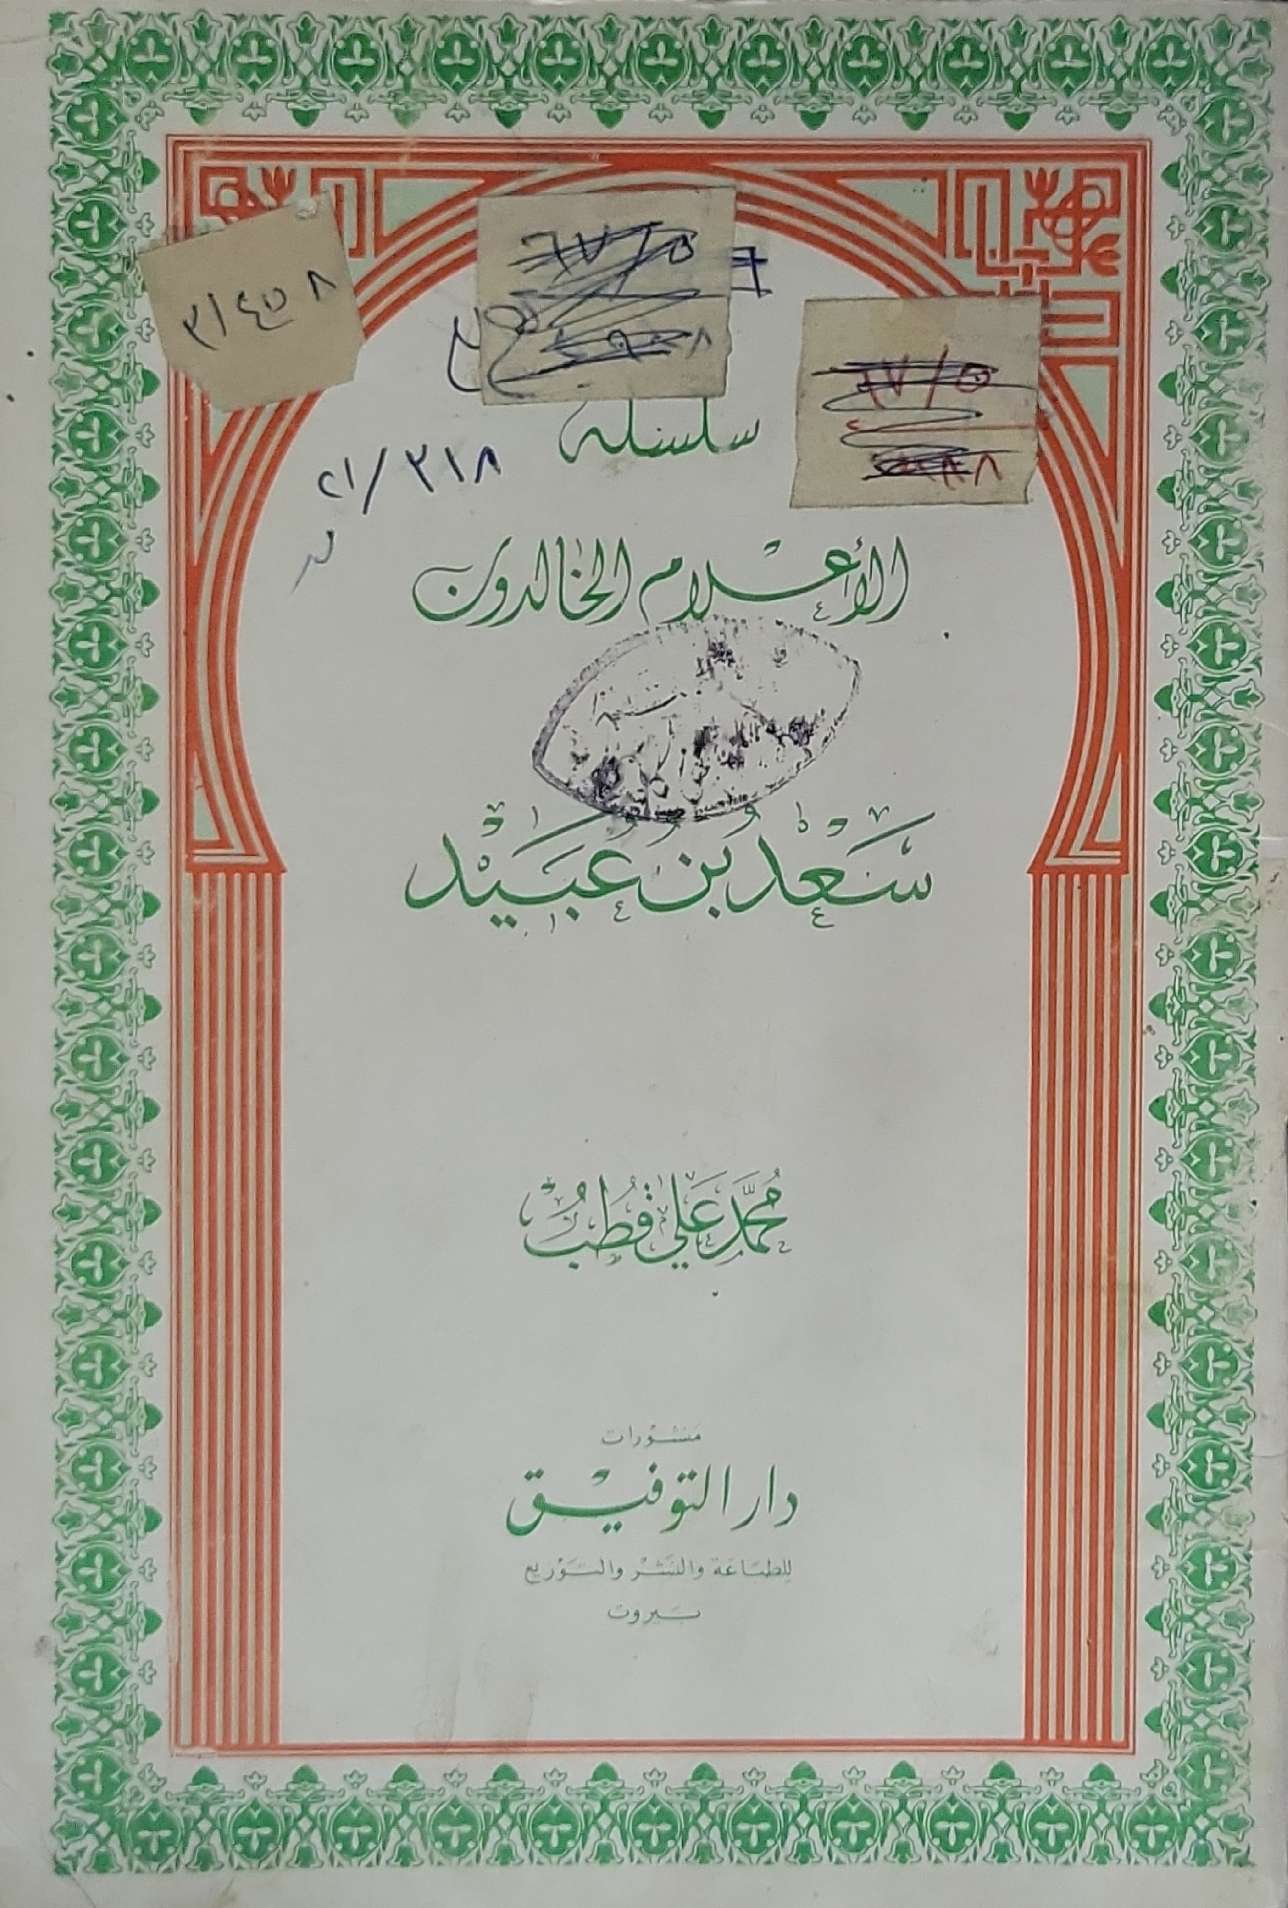 ٢١/٤٥٨
٢١/٣١٨
سلسلة
الأعلام الخالدون
سَعْد بن عُبَيْد
محمَّد عَلي قطبْ
منشورات
دار التوفيق
للطباعة والنشر والتوزيع
بيروت